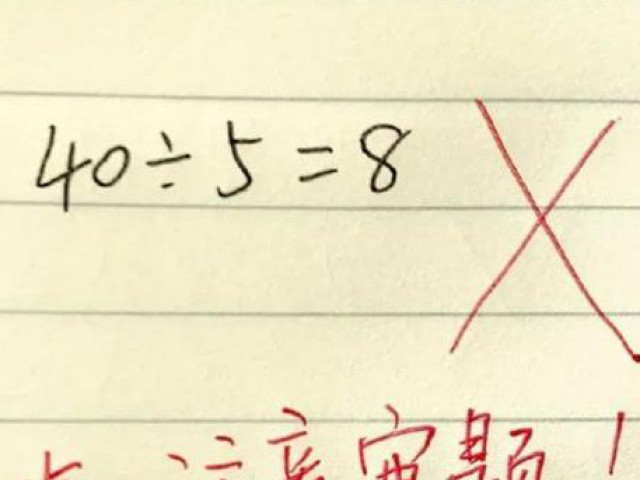 40÷5=8
注意审题!